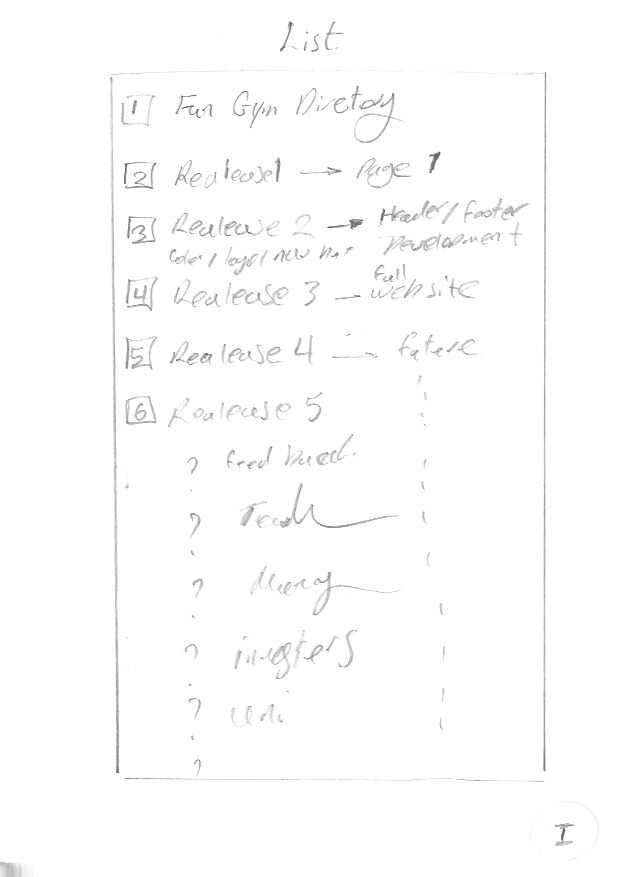 List
1 Fun Gym Diretory
2 Realease1 → Page 1
3 Realease 2 → Header / footer
Development
color / logo / new
4 Realease 3 – full website
5 Realease 4 → future
6 Realease 5
? feed back
?
? Money
? investers
? uni
?
I